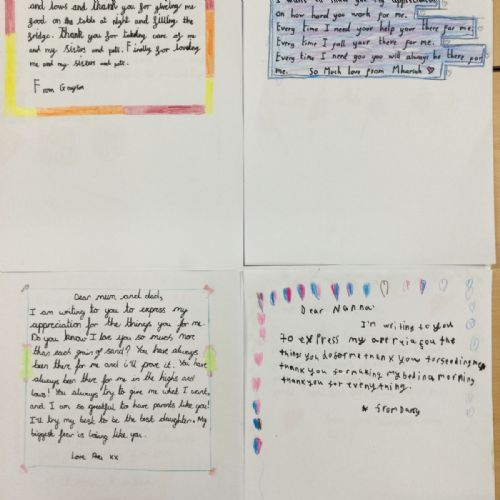 and lows and thank you for giving me
food on the table at night and filling the
fridge. Thank you for taking care of me
and my sisters and pets. Finally for loving
me and my sisters and pets.
From
on how hard you work for me.
Every time I need your help your there for me.
Every time I fall your there for me.
Every time I need you you will always be there for
me. So Much love from
Dear mum and dad,
I am writing to you to express my
appreciation for the things you for me.
Do you know I love you so much, more
than each grain of sand? You have always
been there for me and i'll prove it. You have
always been there for me in the highs and
lows! You always try to give me what I want,
and I am so grateful to have parents like you!
I'll try my best to be the best daughter. My
biggest fear is losing you.
Love xx
Dear Nanna
I'm writing to you
to express my
the
things you do for me thank you for
thank you for making my bed in a morning
thank you for everything.
from Darcy